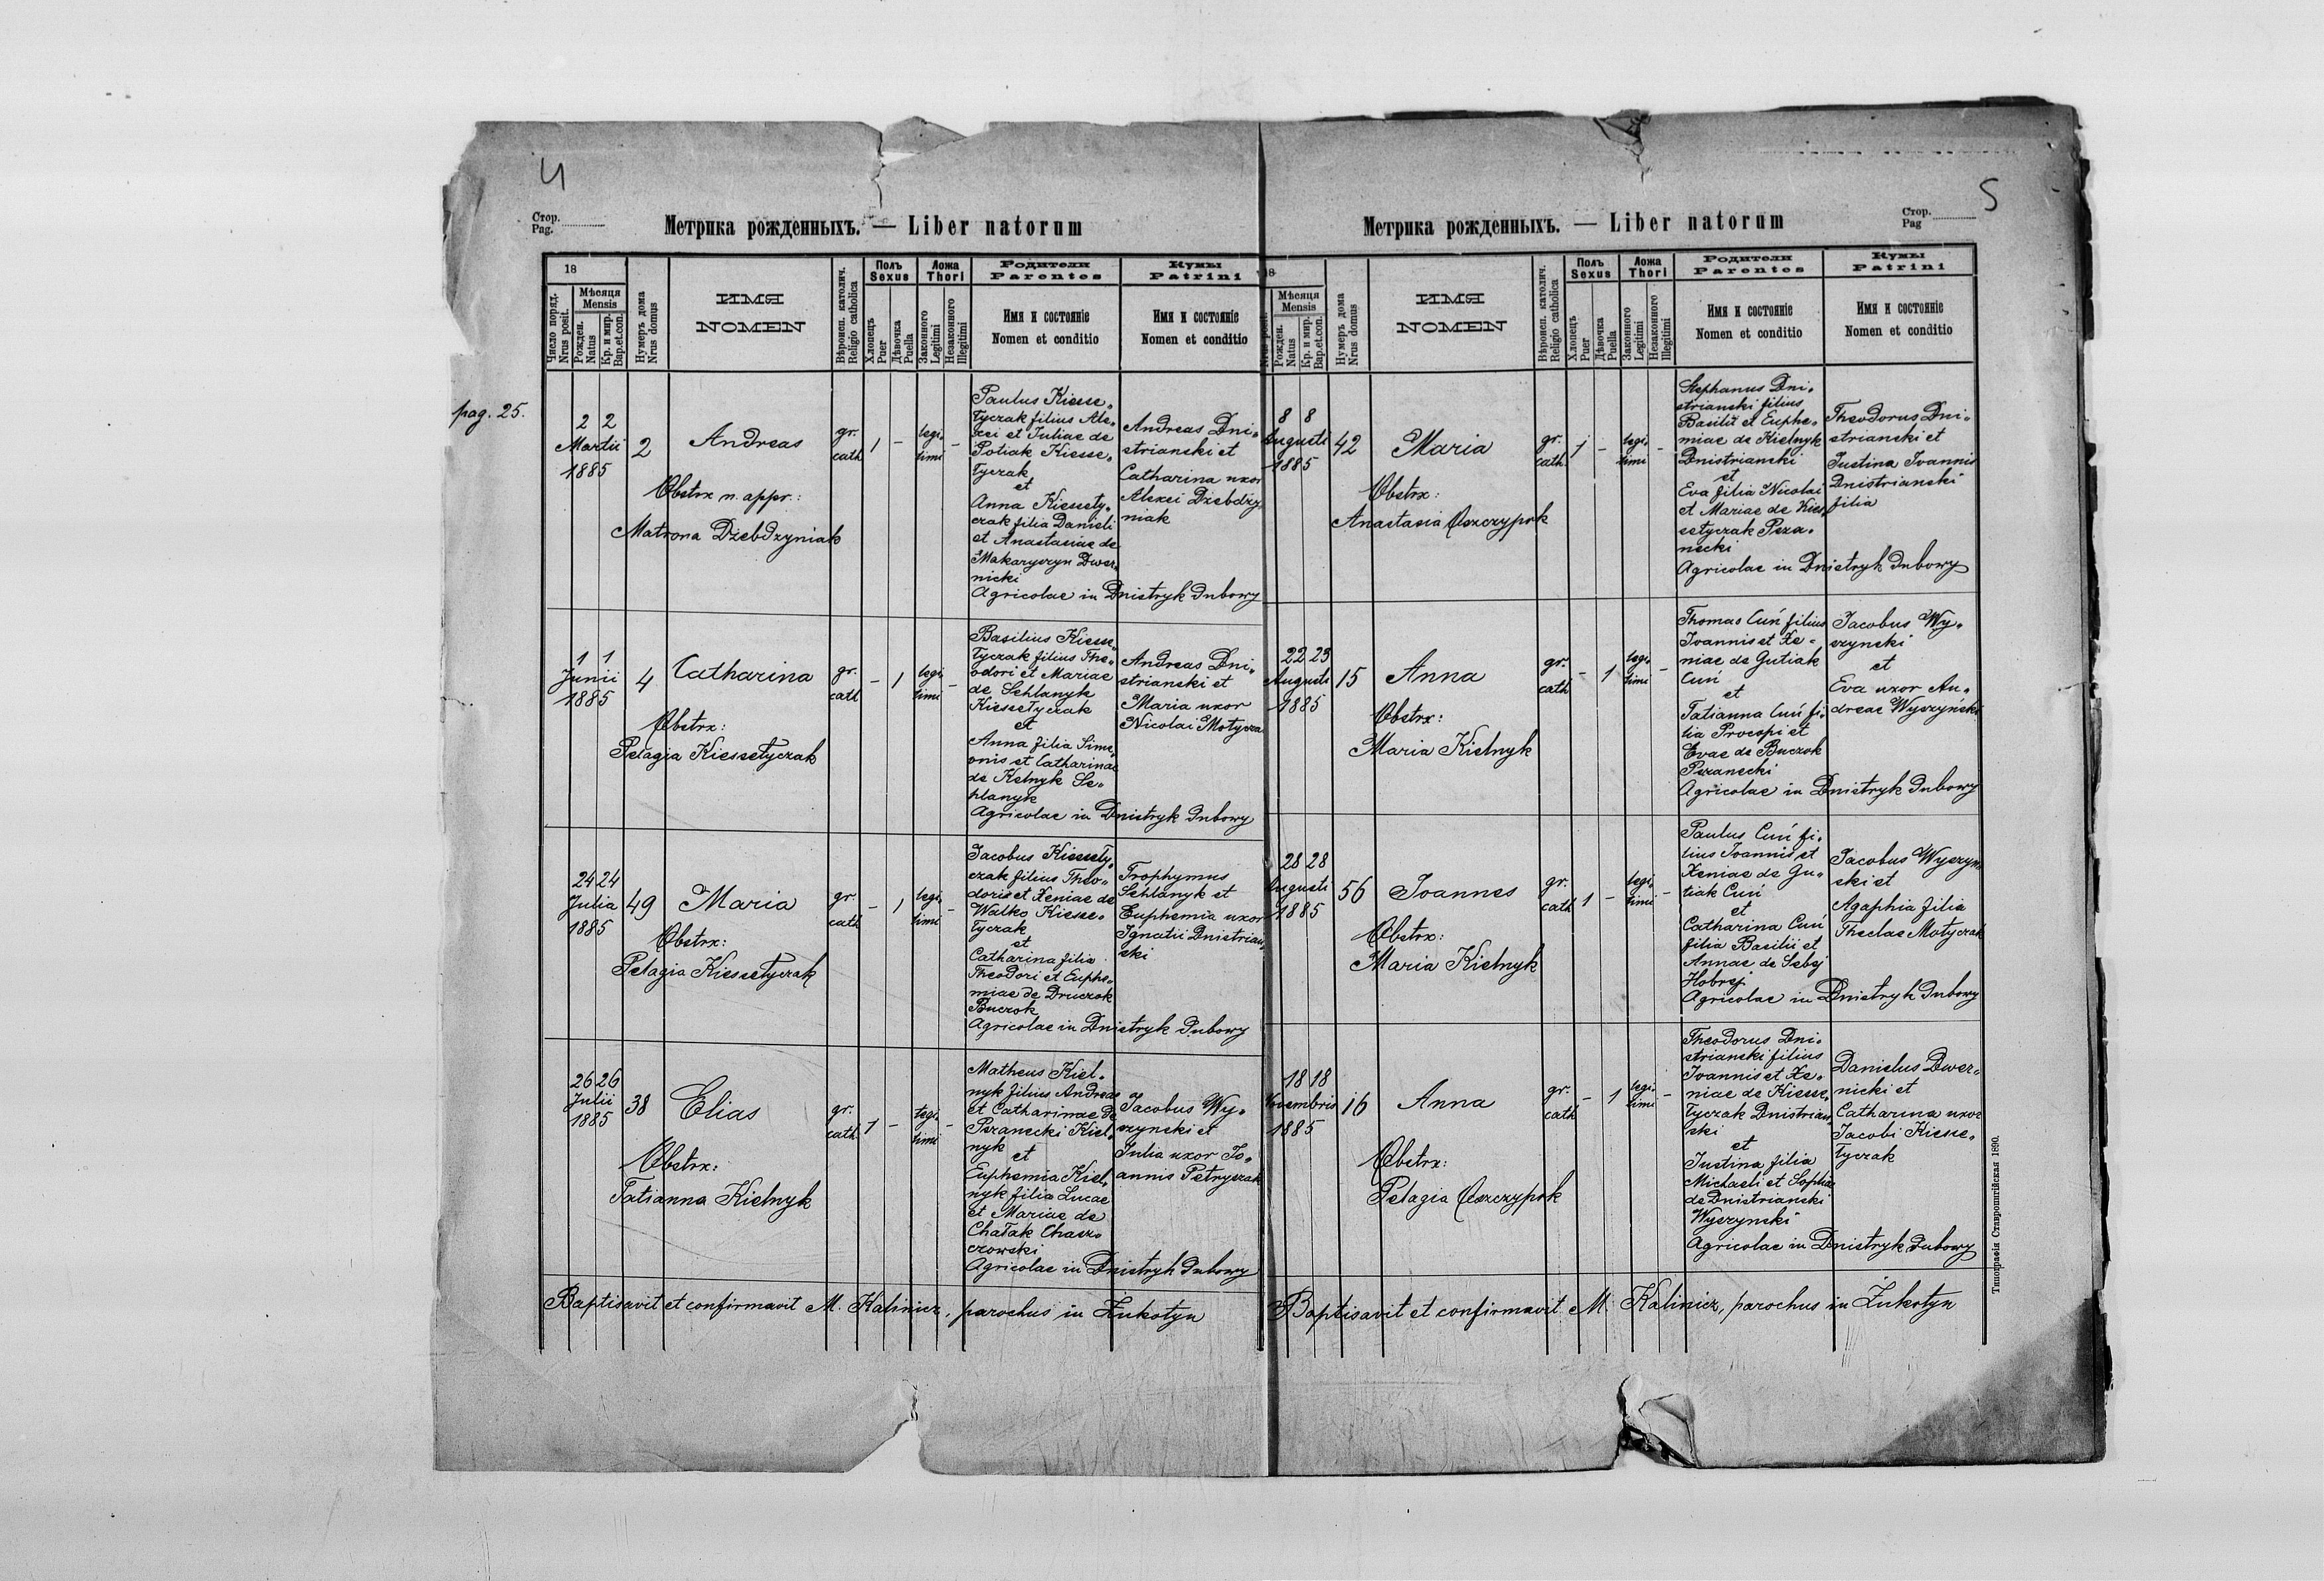 4
Стор.
Pag.
Метрика рожденныхъ. — Liber natorum
18
Число поряд.
Nrus posit.
Мѣсяця
Mensis
Рожден.
Natus
Кр. и мир.
Bap.et.con.
Нумеръ дома
Nrus domus
ИМЯ
NOMEN
Вѣроисп. католич.
Religio catholica
Полъ
Sexus
Хлопецъ
Puer
Дѣвочка
Puella
Ложа
Thori
Законного
Legitimi
Незаконного
Illegitimi
Родители
Parentes
Имя и состоянiе
Nomen et conditio
Кумы
Patrini
Имя и состоянiе
Nomen et conditio
pag. 25.
2 2
Martii
1885
2
Andreas
Obstrx n. appr.:
Matrona Dziebdzyniak
gr.
cath
1
–
legi-
timi
–
Paulus Kiesse-
tyczak filius Ale-
xei et Juliae de
Potiak Kiesse-
tyczak
et
Anna Kiessety-
czak filia Danieli
et Anastasiae de
Makaryczyn Dwer-
nicki
Agricolae in Dnistryk dubowy
Andreas Dni-
strianski et
Catharina uxor
Alexei Dziebdzy-
niak
1 1
Junii
1885
4
Catharina
Obstrx:
Pelagia Kiessetyczak
gr.
cath
–
1
legi-
timi
–
Basilius Kiesse-
tyczak filius The-
odori et Mariae
de Sehlanyk
Kiessetyczak
et
Anna filia Sime-
onis et Catharinae
de Kelnyk Se-
hlanyk
Agricolae in Dnistryk dubowy
Andreas Dni-
strianski et
Maria uxor
Nicolai Motycza
24 24
Julia
1885
49
Maria
Obstrx:
Pelagia Kiessetyczak
gr.
cath
–
1
legi-
timi
–
Jacobus Kiessety-
czak filius Theo-
doris et Xeniae de
Walko Kiesse-
tyczak
et
Catharina filia
Theodori et Euphe-
miae de Druczok
Buczok
Agricolae in Dnistryk Dubowy
Trophymus
Sehlanyk et
Euphemia uxor
Ignatii Dnistrian-
ski
26 26
Julii
1885
38
Elias
Obstrx:
Tatianna Kielnyk
gr.
cath
1
–
legi-
timi
–
Matheus Kiel-
nyk filius Andreae
et Catharinae de
Pszanecki Kiel-
nyk
et
Euphemia Kiel-
nyk filia Lucae
et Mariae de
Chatak Chasz-
czowski
Agricolae in Dnistryk dubowy
Jacobus Wy-
szynski et
Julia uxor Jo-
annis Petryczak
Baptisavit et confirmavit M. Kalinicz, parochus in Łukotyn
5
Стор.
Pag
Метрика рожденныхъ. — Liber natorum
18
Nrus posit.
Мѣсяця
Mensis
Рожден.
Natus
Кр. и мир.
Bap.et.con.
Нумеръ дома
Nrus domus
ИМЯ
NOMEN
Вѣроисп. католич.
Religio catholica
Полъ
Sexus
Хлопецъ
Puer
Дѣвочка
Puella
Ложа
Thori
Законного
Legitimi
Незаконного
Illegitimi
Родители
Parentes
Имя и состоянiе
Nomen et conditio
Кумы
Patrini
Имя и состоянiе
Nomen et conditio
8 8
Augusti
1885
42
Maria
Obstrx:
Anastasia Oszczypok
gr.
cath.
1
–
legi-
timi
–
Stephanus Dni-
strianski filius
Basilii et Euphe-
miae de Kielnyk
Dnistrianski
et
Eva filia Nicolai
et Mariae de Kies-
setyczak Psza-
necki
Agricolae in Dnistryk dubowy
Theodorus Dni-
strianski et
Justina Joannis
Dnistrianski
filia
22 23
Augusti
1885
15
Anna
Obstrx:
Maria Kielnyk
gr.
cath
–
1
legi-
timi
–
Thomas Cuń filius
Joannis et Xe-
niae de Gutiak
Cuń
et
Tatianna Cuń fi-
lia Procopi et
Evae de Buczok
Pszanecki
Agricolae in Dnistryk dubowy
Jacobus Wy-
szynski
et
Eva uxor An-
dreae Wyszyński
28 28
Augusti
1885
56
Joannes
Obstrx:
Maria Kielnyk
gr.
cath
1
–
legi-
timi
–
Paulus Cuń fi-
lius Joannis et
Xeniae de Gu-
tiak Cuń
et
Catharina Cuń
filia Basilii et
Annae de Sebej
Hobrej
Agricolae in Dnistryk dubowy
Jacobus Wyszyn-
ski et
Agaphia filia
Theclae Motyczak
18 18
Novembris
1885
16
Anna
Obstrx:
Pelagia Oszczypok
gr.
cath
–
1
legi-
timi
–
Theodorus Dni-
strianski filius
Joannis et Xe-
niae de Kiesse-
tyczak Dnistrian-
ski
et
Justina filia
Michaeli et Sophiae
de Dnistrianski
Wyszynski
Agricolae in Dnistryk dubowy
Danielus Dwer-
nicki et
Catharina uxor
Jacobi Kiesse-
tyczak
Baptisavit et confirmavit M. Kalinicz, parochus in Łukotyn
Типографiя Ставропигiйская 1890.